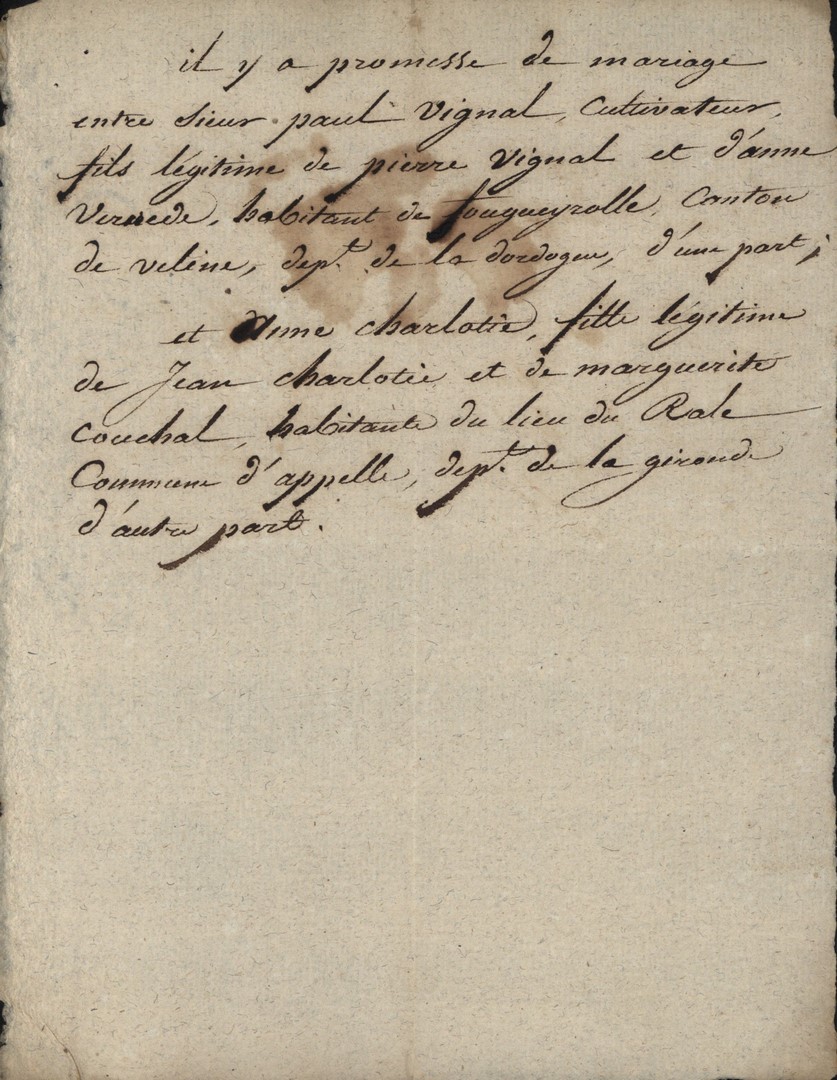 il y a promesse de mariage
entre sieur paul Vignal, Cultivateur,
fils légitime de pierre Vignal et d'anne
Vernede, habitant de fougueyrolle, Canton
de veline, dept. de la dordogne, d'une part;
et Anne charlotie, fille légitime
de Jean charlotie et de marguerite
couchal, habitante du lieu du Rale
Commune d'appelle, dept. de la gironde
d'autre part.